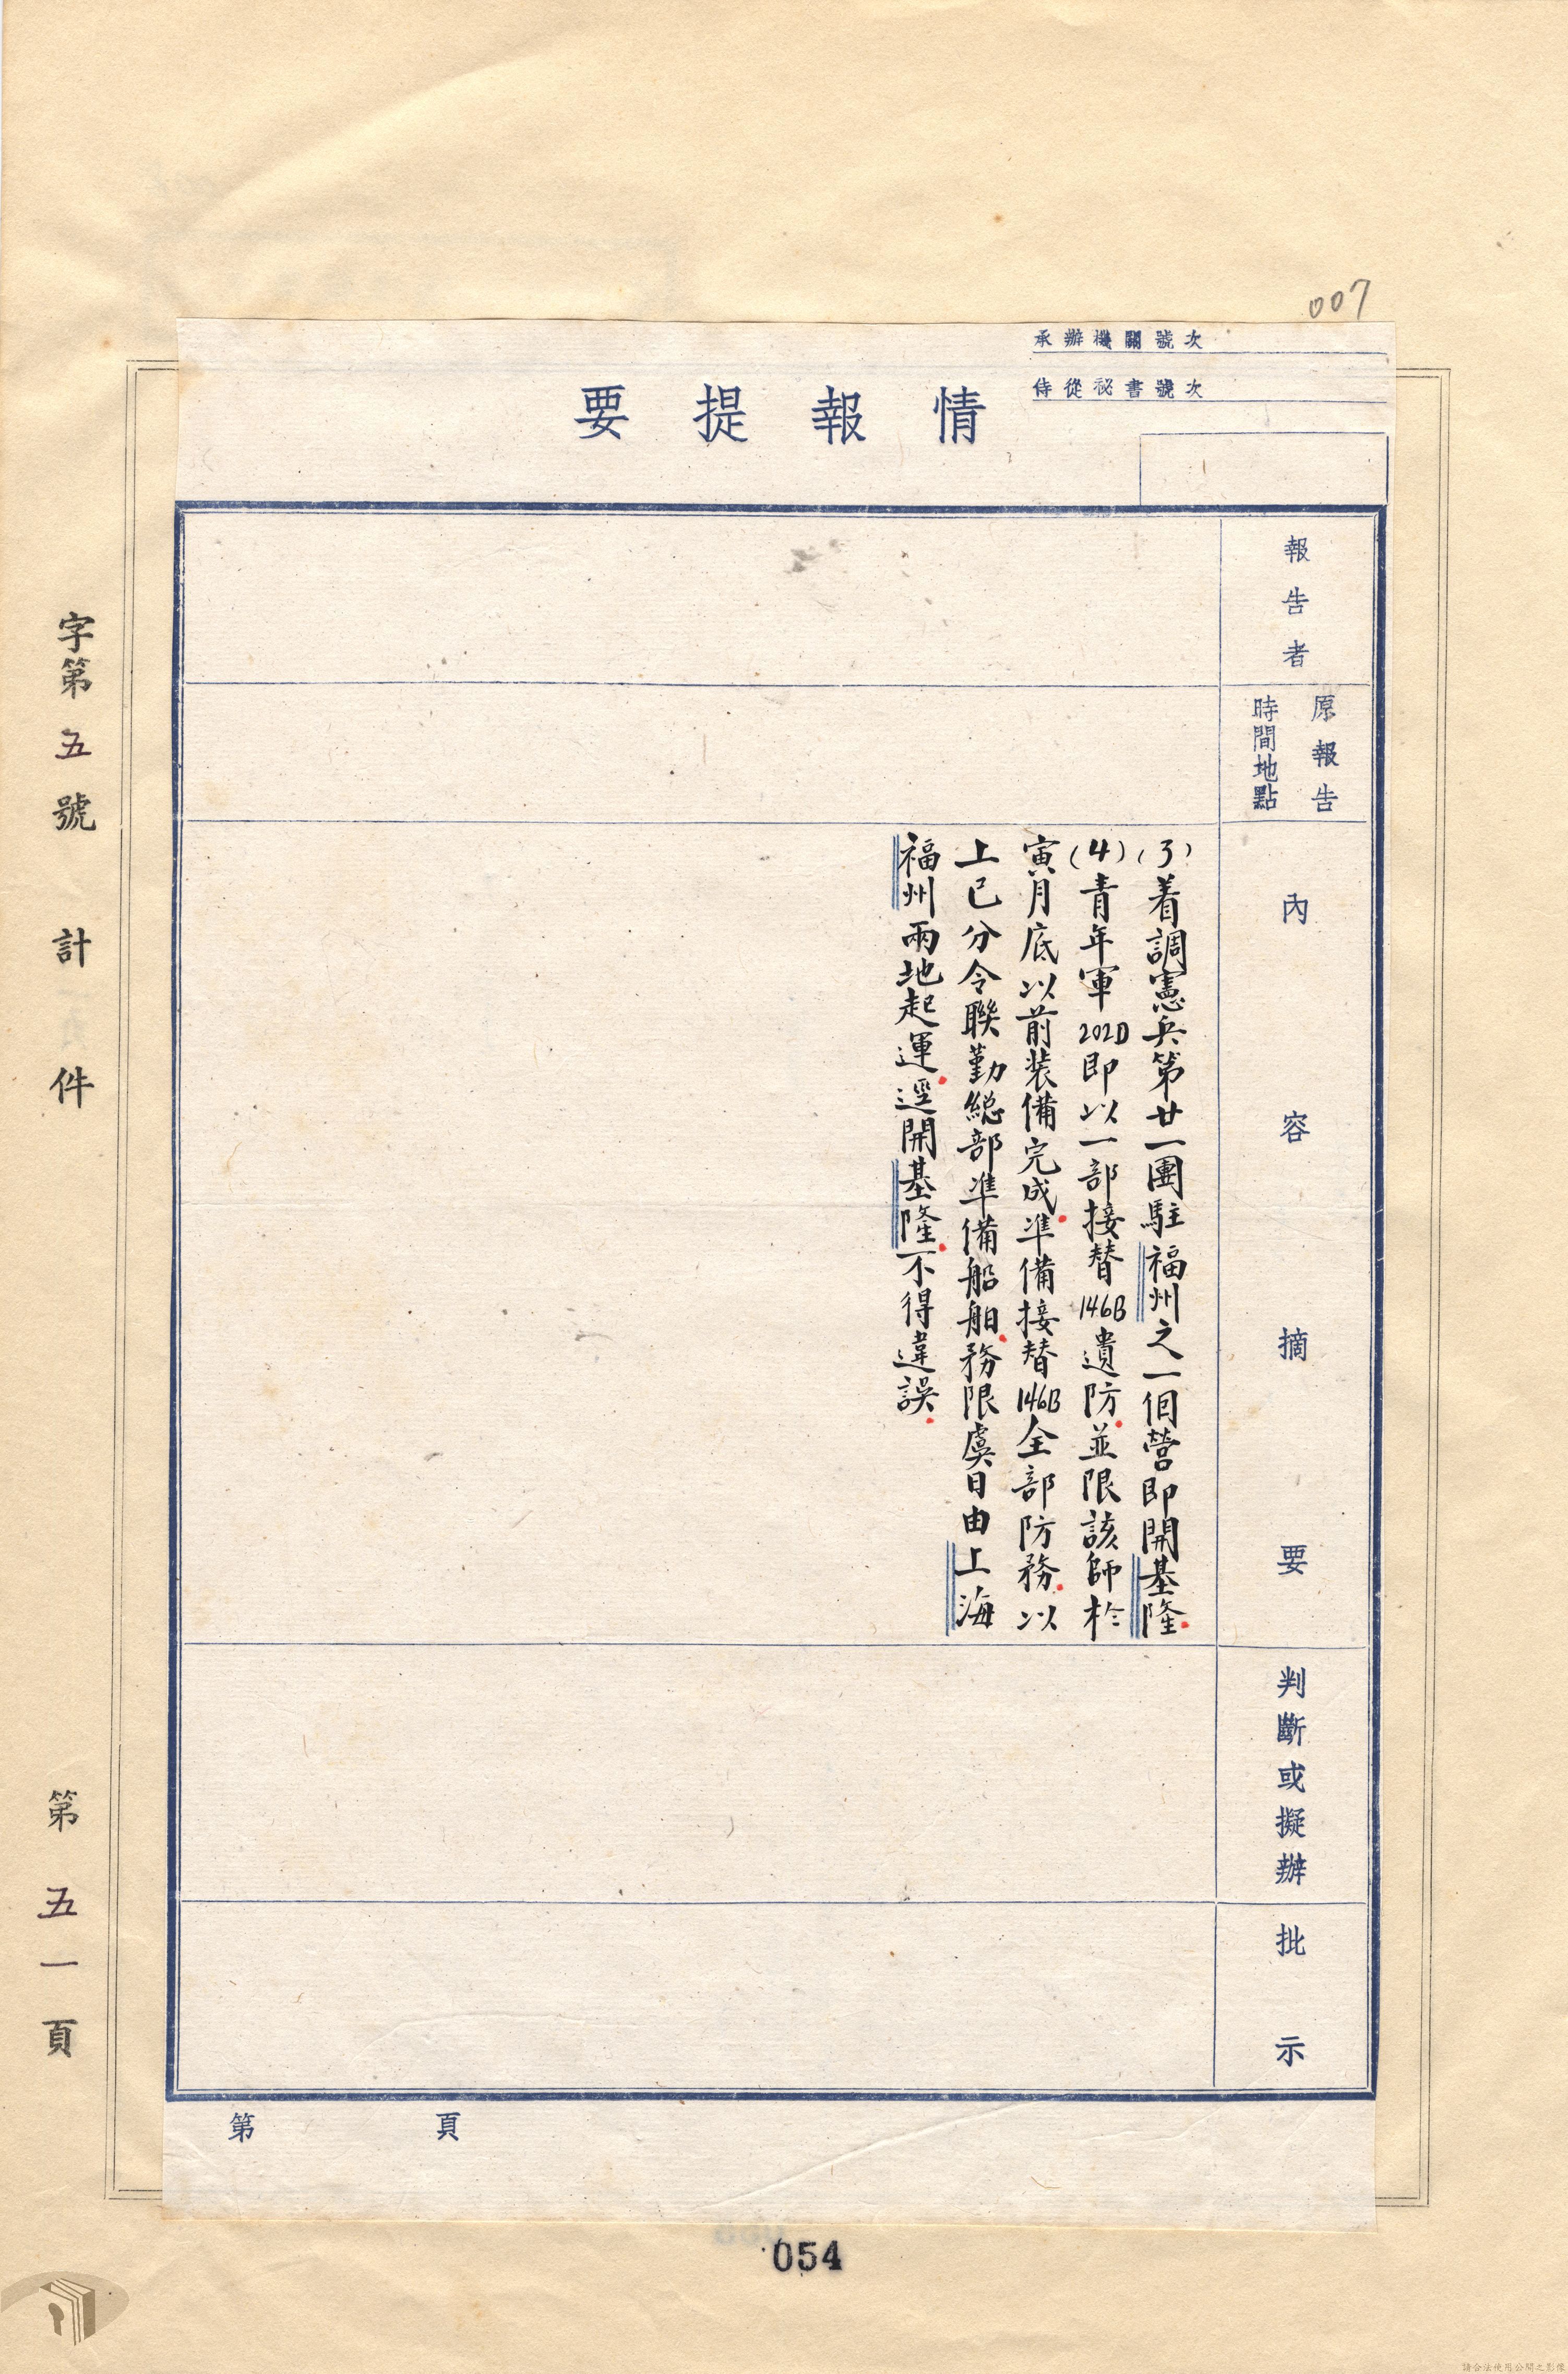 007
承辦機關號次
侍從祕書號次
情報提要
報告者
原報告
時間地點
內容摘要
判斷或擬辦
批示
(3)着調憲兵第廿一團駐福州之一個營即開基隆
(4)青年軍202D即以一部接替146B遺防並限該師於
寅月底以前裝備完成準備接替146B全部防務以
上已分令聯勤總部準備船舶務限虞日由上海
福州兩地起運逕開基隆不得違誤
第 頁
字第五號 計 件
第五一頁
054
請合法使用公開之影像